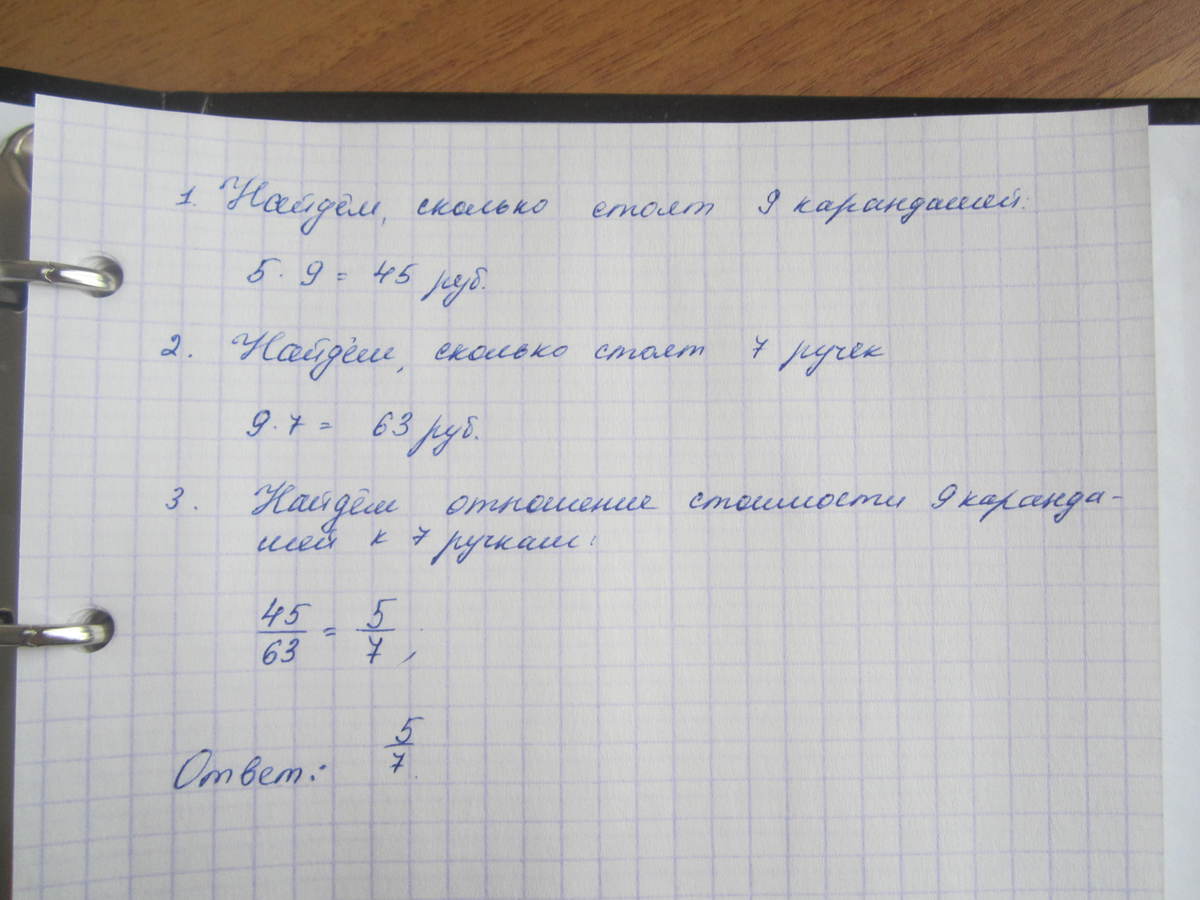 1. Найдём, сколько стоят 9 карандашей:
5 · 9 = 45 руб.
2. Найдём, сколько стоят 7 ручек
9 · 7 = 63 руб.
3. Найдём отношение стоимости 9 каранда-
шей к 7 ручкам:
45/63 = 5/7,
Ответ: 5/7